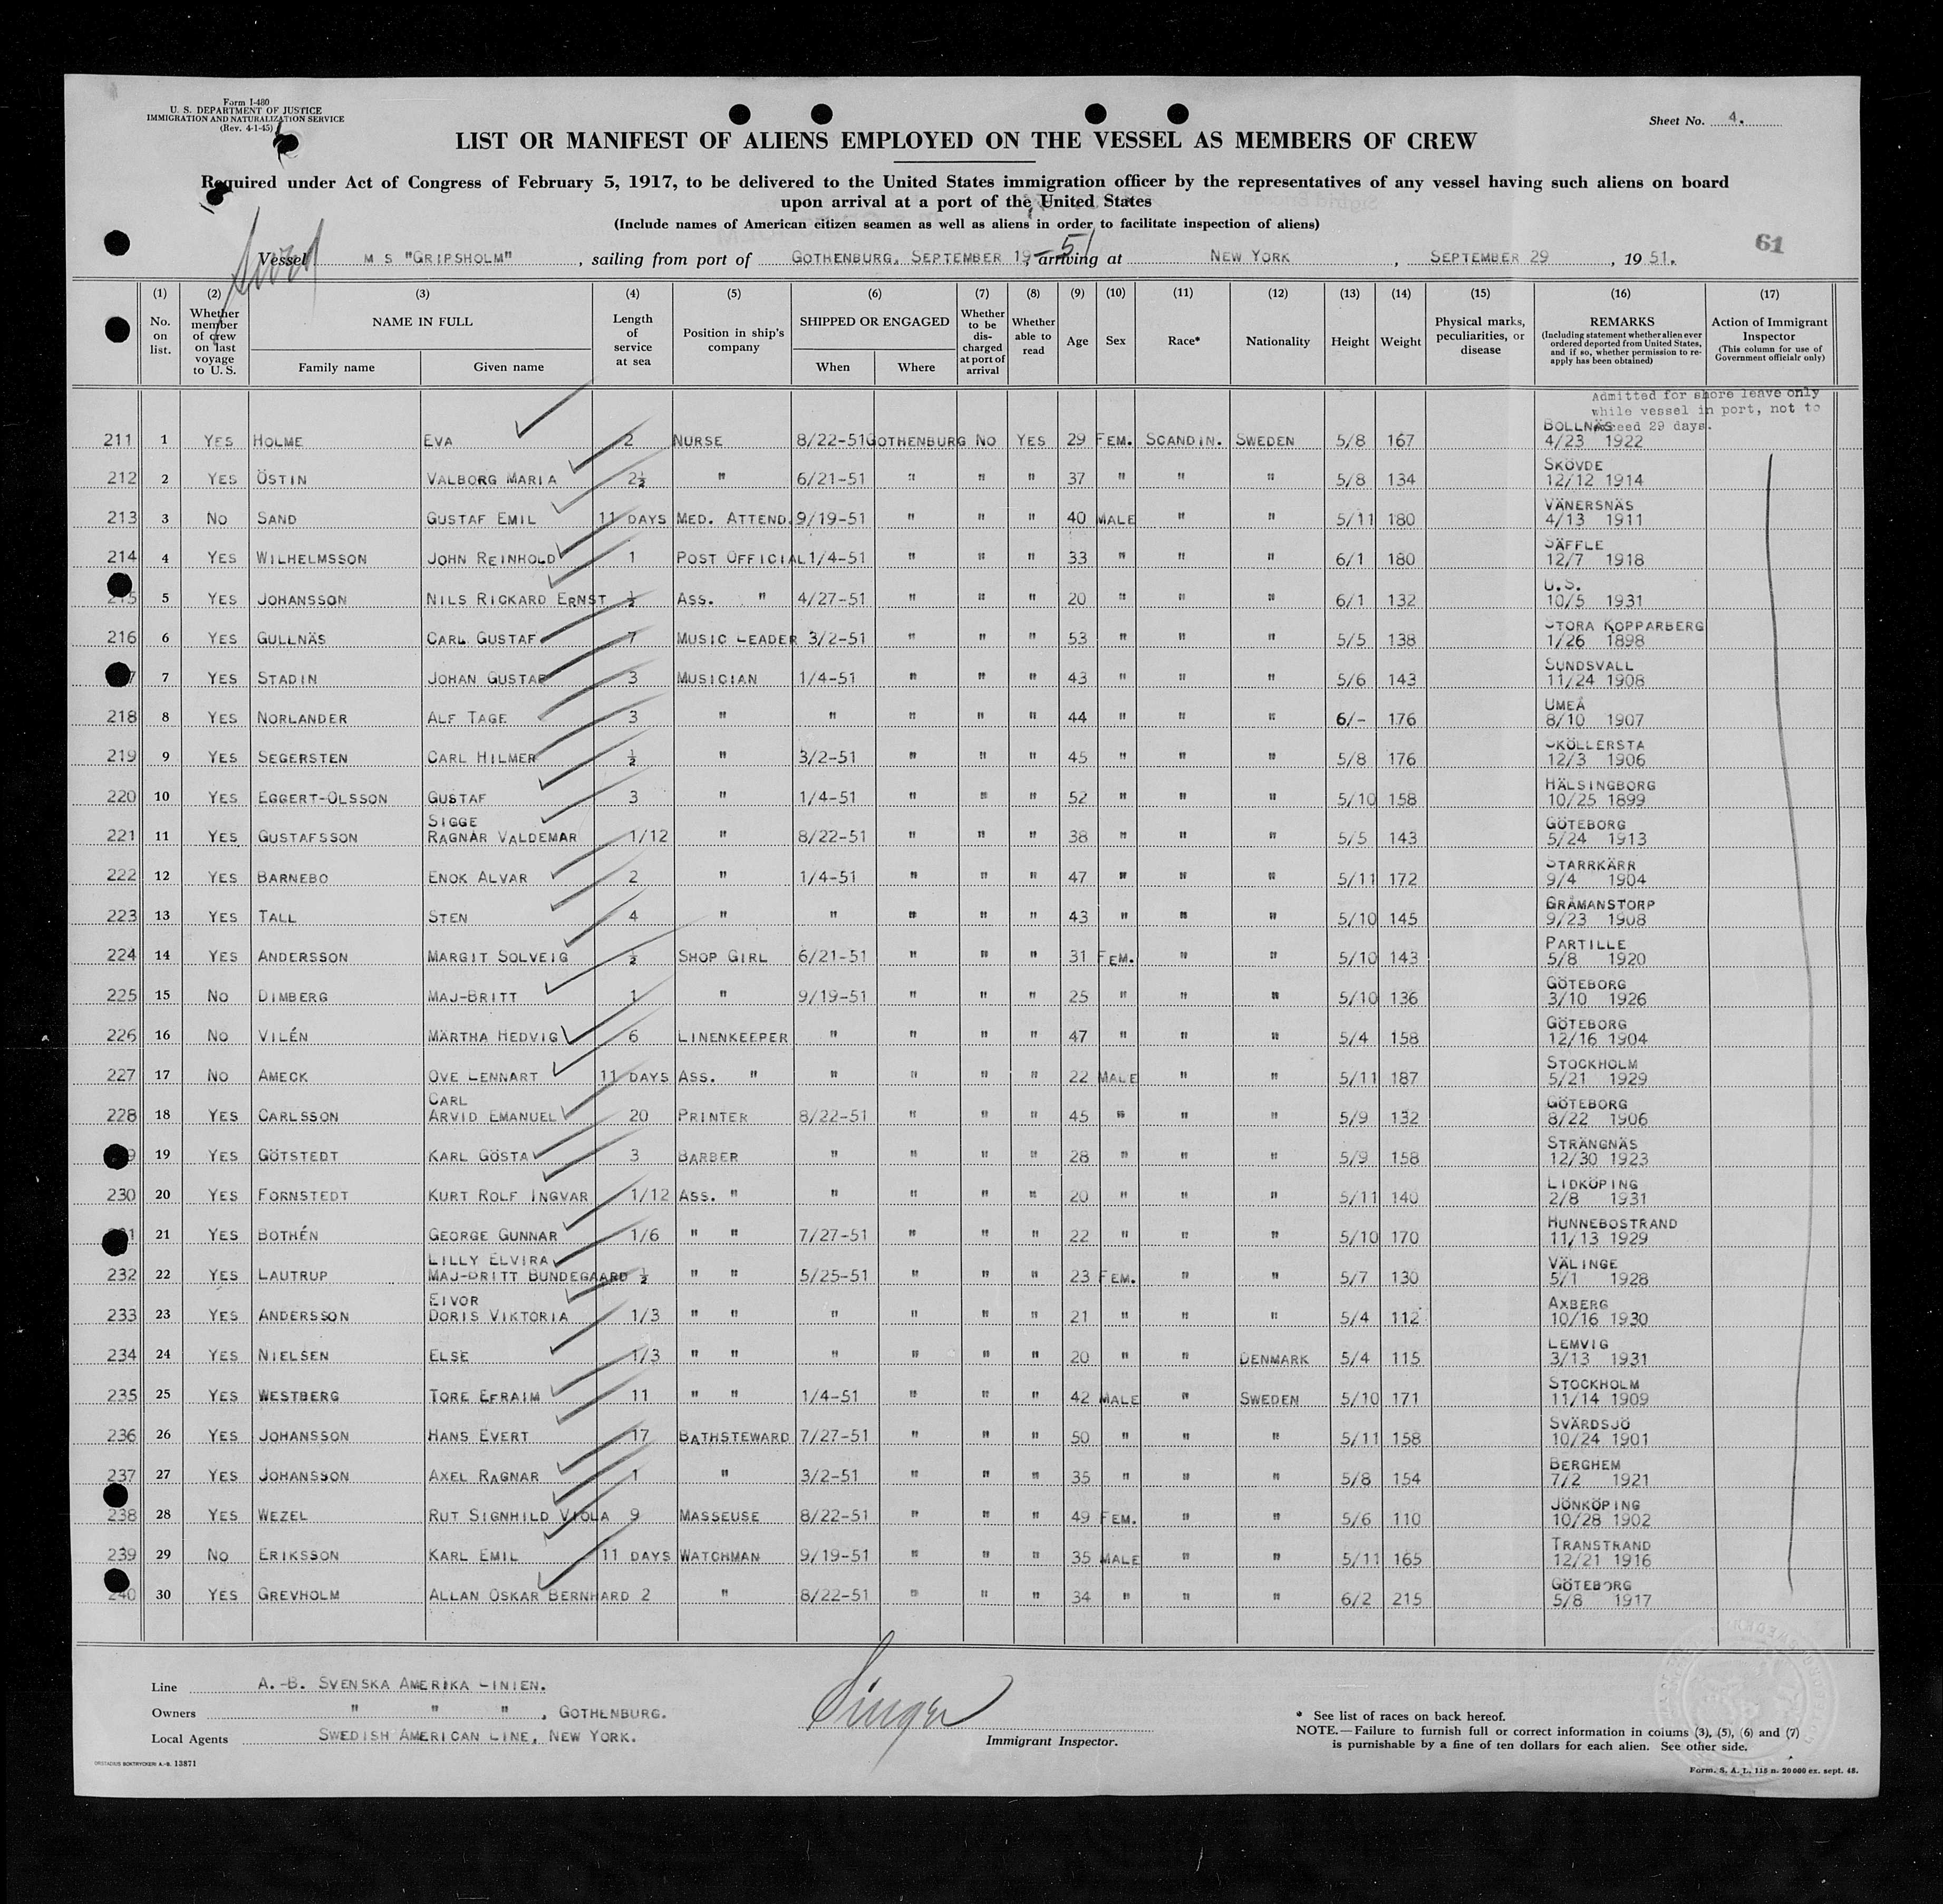 Form I-480
U. S. DEPARTMENT OF JUSTICE
IMMIGRATION AND NATURALIZATION SERVICE
(Rev. 4-1-45)
Sheet No. 4.
LIST OR MANIFEST OF ALIENS EMPLOYED ON THE VESSEL AS MEMBERS OF CREW
Required under Act of Congress of February 5, 1917, to be delivered to the United States immigration officer by the representatives of any vessel having such aliens on board
upon arrival at a port of the United States
(Include names of American citizen seamen as well as aliens in order to facilitate inspection of aliens)
61
Vessel M S "GRIPSHOLM", sailing from port of GOTHENBURG, SEPTEMBER 19-51, arriving at NEW YORK, SEPTEMBER 29, 1951.
(1) (2) (3) (4) (5) (6) (7) (8) (9) (10) (11) (12) (13) (14) (15) (16) (17)
No. on list. Whether member of crew on last voyage to U. S. NAME IN FULL Family name Given name Length of service at sea Position in ship's company SHIPPED OR ENGAGED When Where Whether to be discharged at port of arrival Whether able to read Age Sex Race* Nationality Height Weight Physical marks, peculiarities, or disease REMARKS (Including statement whether alien ever ordered deported from United States, and if so, whether permission to reapply has been obtained) Action of Immigrant Inspector (This column for use of Government officials only)
Admitted for shore leave only
while vessel in port, not to
exceed 29 days.
211 1 YES HOLME EVA 2 NURSE 8/22-51 GOTHENBURG NO YES 29 FEM. SCANDIN. SWEDEN 5/8 167 BOLLNÄS 4/23 1922
212 2 YES ÖSTIN VALBORG MARIA 2½ " 6/21-51 " " " 37 " " " 5/8 134 SKÖVDE 12/12 1914
213 3 NO SAND GUSTAF EMIL 11 DAYS MED. ATTEND. 9/19-51 " " " 40 MALE " " 5/11 180 VÄNERSNÄS 4/13 1911
214 4 YES WILHELMSSON JOHN REINHOLD 1 POST OFFICIAL 1/4-51 " " " 33 " " " 6/1 180 SÄFFLE 12/7 1918
215 5 YES JOHANSSON NILS RICKARD ERNST ½ ASS. " 4/27-51 " " " 20 " " " 6/1 132 U.S. 10/5 1931
216 6 YES GULLNÄS CARL GUSTAF 7 MUSIC LEADER 3/2-51 " " " 53 " " " 5/5 138 STORA KOPPARBERG 1/26 1898
7 7 YES STADIN JOHAN GUSTAF 3 MUSICIAN 1/4-51 " " " 43 " " " 5/6 143 SUNDSVALL 11/24 1908
218 8 YES NORLANDER ALF TAGE 3 " " " " " 44 " " " 6/- 176 UMEÅ 8/10 1907
219 9 YES SEGERSTEN CARL HILMER ½ " 3/2-51 " " " 45 " " " 5/8 176 SKÖLLERSTA 12/3 1906
220 10 YES EGGERT-OLSSON GUSTAF 3 " 1/4-51 " " " 52 " " " 5/10 158 HÄLSINGBORG 10/25 1899
221 11 YES GUSTAFSSON SIGGE RAGNAR VALDEMAR 1/12 " 8/22-51 " " " 38 " " " 5/5 143 GÖTEBORG 5/24 1913
222 12 YES BARNEBO ENOK ALVAR 2 " 1/4-51 " " " 47 " " " 5/11 172 STARRKÄRR 9/4 1904
223 13 YES TALL STEN 4 " " " " " 43 " " " 5/10 145 GRÅMANSTORP 9/23 1908
224 14 YES ANDERSSON MARGIT SOLVEIG ½ SHOP GIRL 6/21-51 " " " 31 FEM. " " 5/10 143 PARTILLE 5/8 1920
225 15 NO DIMBERG MAJ-BRITT 1 " 9/19-51 " " " 25 " " " 5/10 136 GÖTEBORG 3/10 1926
226 16 NO VILÉN MÄRTHA HEDVIG 6 LINENKEEPER " " " " 47 " " " 5/4 158 GÖTEBORG 12/16 1904
227 17 NO AMECK OVE LENNART 11 DAYS ASS. " " " " " 22 MALE " " 5/11 187 STOCKHOLM 5/21 1929
228 18 YES CARLSSON CARL ARVID EMANUEL 20 PRINTER 8/22-51 " " " 45 " " " 5/9 132 GÖTEBORG 8/22 1906
9 19 YES GÖTSTEDT KARL GÖSTA 3 BARBER " " " " 28 " " " 5/9 158 STRÄNGNÄS 12/30 1923
230 20 YES FORNSTEDT KURT ROLF INGVAR 1/12 ASS. " " " " " 20 " " " 5/11 140 LIDKÖPING 2/8 1931
1 21 YES BOTHÉN GEORGE GUNNAR 1/6 " " 7/27-51 " " " 22 " " " 5/10 170 HUNNEBOSTRAND 11/13 1929
232 22 YES LAUTRUP LILLY ELVIRA MAJ-BRITT BUNDEGAARD ½ " " 5/25-51 " " " 23 FEM. " " 5/7 130 VÄLINGE 5/1 1928
233 23 YES ANDERSSON EIVOR DORIS VIKTORIA 1/3 " " " " " " 21 " " " 5/4 112 AXBERG 10/16 1930
234 24 YES NIELSEN ELSE 1/3 " " " " " " 20 " " DENMARK 5/4 115 LEMVIG 3/13 1931
235 25 YES WESTBERG TORE EFRAIM 11 " " 1/4-51 " " " 42 MALE " SWEDEN 5/10 171 STOCKHOLM 11/14 1909
236 26 YES JOHANSSON HANS EVERT 17 BATHSTEWARD 7/27-51 " " " 50 " " " 5/11 158 SVÄRDSJÖ 10/24 1901
237 27 YES JOHANSSON AXEL RAGNAR 1 " 3/2-51 " " " 35 " " " 5/8 154 BERGHEM 7/2 1921
238 28 YES WEZEL RUT SIGNHILD VIOLA 9 MASSEUSE 8/22-51 " " " 49 FEM. " " 5/6 110 JÖNKÖPING 10/28 1902
239 29 NO ERIKSSON KARL EMIL 11 DAYS WATCHMAN 9/19-51 " " " 35 MALE " " 5/11 165 TRANSTRAND 12/21 1916
240 30 YES GREVHOLM ALLAN OSKAR BERNHARD 2 " 8/22-51 " " " 34 " " " 6/2 215 GÖTEBORG 5/8 1917
Line A.-B. SVENSKA AMERIKA LINIEN.
Owners " " ", GOTHENBURG.
Local Agents SWEDISH AMERICAN LINE, NEW YORK.
Singer
Immigrant Inspector.
* See list of races on back hereof.
NOTE.—Failure to furnish full or correct information in colums (3), (5), (6) and (7)
is punishable by a fine of ten dollars for each alien. See other side.
13871
Form. S. A. L. 115 n. 20000 ex. sept. 48.